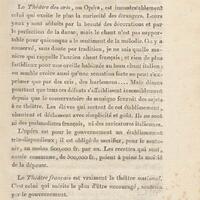 Le Théâtre des arts, ou Opéra, est incontestablement
celui qui excite le plus la curiosité des étrangers. Leurs
yeux y sont séduits par la beauté des décorations et par
la perfection de la danse, mais le chant n'est pas suppor-
table pour quiconque a le sentiment de la mélodie. On y a
conservé, sans doute par tradition, je ne sais quelle ma-
nière qui rappelle l'ancien chant français, et rien de plus
horrible pour une oreille habituée au beau chant italien,
ou semble croire aussi qu'une sensation forte ne peut s'ex-
primer que par des cris, des hurlemens.... Mais disons
pourtant que tous ces défauts s'affaiblissent sensiblement
depuis que le conservatoire de musique fournit des sujets
à ce théâtre. Les élèves qui sortent de cet établissement,
chantent et déclament avec simplicité et goût. Ils ne sont
ni des psalmodistes français, ni des caricatures italiennes.
L'opéra est pour le gouvernement un établissement
très-dispendieux; il est obligé de sacrifier, pour le soute-
nir, au moins 600,000 fr. par an. Les recettes qui sont,
année commune, de 500,000 fr., paient à peine la moitié
de la dépense.
Le Théâtre français est vraiment le théâtre national.
C'est celui qui mérite le plus d'être encouragé, soutenu
par le gouvernement.